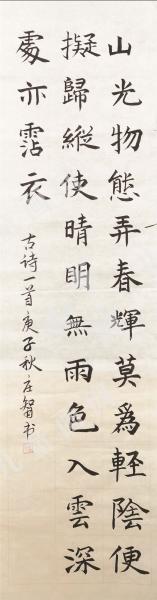 山光物態弄春輝莫為輕陰便
擬歸縱使晴明無雨色入雲深
處亦霑衣
古诗一首庚子秋庄智书